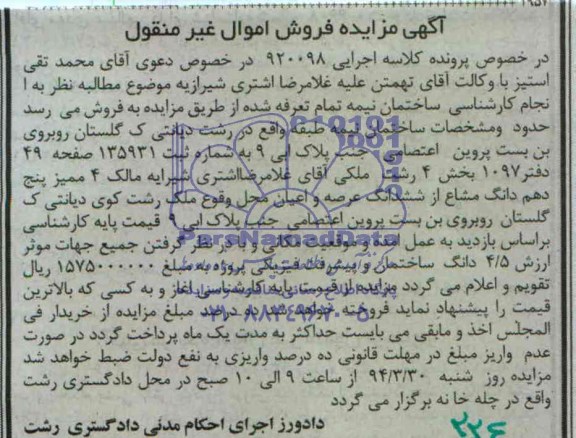 ۱۹۵۲
آگهی مزایده فروش اموال غیر منقول
در خصوص پرونده کلاسه اجرایی ۹۲۰۰۹۸ در خصوص دعوی آقای محمد تقی
استیز با وکالت آقای تهمتن علیه غلامرضا اشتری شیرازیه موضوع مطالبه نظر به ا
نجام کارشناسی ساختمان نیمه تمام تعرفه شده از طریق مزایده به فروش می رسد
حدود ومشخصات ساختمان نیمه طبقه واقع در رشت دیانتی ک گلستان روبروی
بن بست پروین اعتصامی جنب پلاک ابی ۹ به شماره ثبت ۱۳۵۹۳۱ صفحه ۴۹
دفتر۱۰۹۷ بخش ۴ رشت ملکی آقای غلامرضااشتری شیرایه مالک ۴ ممیز پنج
دهم دانگ مشاع از ششدانگ عرصه و اعیان محل وقوع ملک رشت کوی دیانتی ک
گلستان روبروی بن بست پروین اعتصامی جنب پلاک ابی ۹ قیمت پایه کارشناسی
براساس بازدید به عمل امده و موقعیت مکانی و با در نظر گرفتن جمیع جهات موثر
ارزش ۴/۵ دانگ ساختمان و پیشرفت فیزیکی پروژه به مبلغ ۱۵۷۵۰۰۰۰۰۰ ریال
تقویم و اعلام می گردد مزایده از قیمت پایه کارشناسی اغاز و به کسی که بالاترین
قیمت را پیشنهاد نماید فروخته خواهد شد ده درصد مبلغ مزایده از خریدار فی
المجلس اخذ و مابقی می بایست حداکثر به مدت یک ماه پرداخت گردد در صورت
عدم واریز مبلغ در مهلت قانونی ده درصد واریزی به نفع دولت ضبط خواهد شد
مزایده روز شنبه ۹۴/۳/۳۰ از ساعت ۹ الی ۱۰ صبح در محل دادگستری رشت
واقع در چله خا نه برگزار می گردد
دادورز اجرای احکام مدنی دادگستری رشت
۲۲۶
ParsNamadData